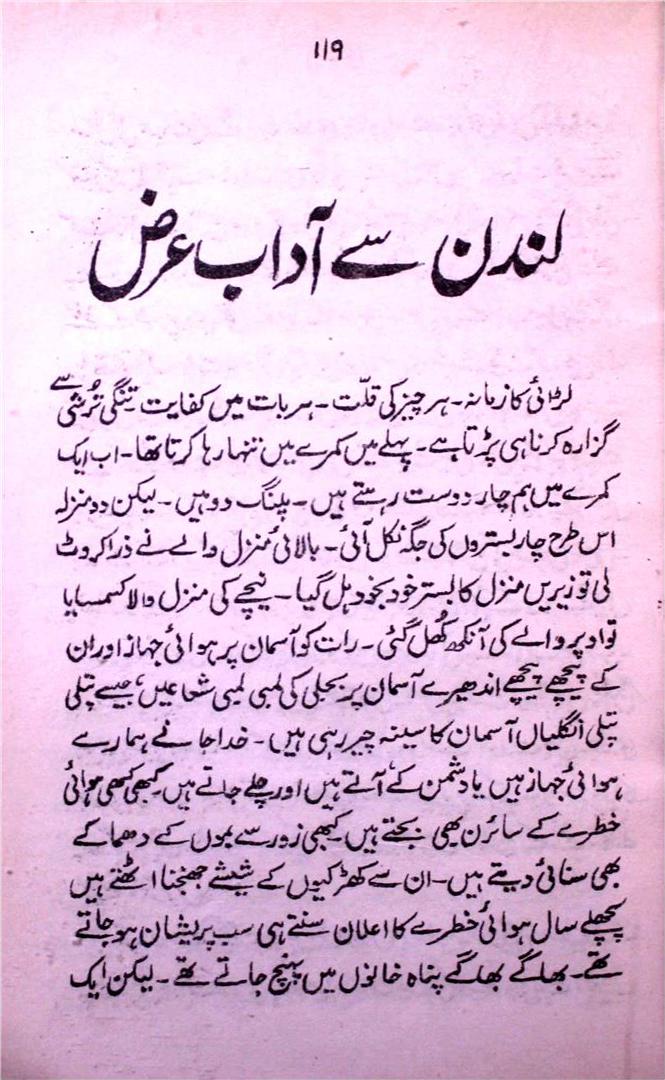 ۱۱۹
لندن سے آداب عرض
لڑائی کا زمانہ۔ ہر چیز کی قلّت۔ ہر بات میں کفایت۔ تنگی تُرشی سے
گزارہ کرنا ہی پڑتا ہے۔ پہلے میں کمرے میں تنہا رہا کرتا تھا۔ اب ایک
کمرے میں ہم چار دوست رہتے ہیں۔ پلنگ دو ہیں۔ لیکن دو منزلہ
اس طرح چار بستروں کی جگہ نکل آئی۔ بالائی منزل والے نے ذرا کروٹ
لی تو زیریں منزل کا بستر خود بخود ہل گیا۔ نیچے کی منزل والا کسمسایا
تو اوپر والے کی آنکھ کُھل گئی۔ رات کو آسمان پر ہوائی جہاز اور ان
کے پیچھے پیچھے اندھیرے آسمان پر بجلی کی لمبی لمبی شعاعیں، جیسے پتلی
پتلی انگلیاں آسمان کا سینہ چیر رہی ہیں۔ خدا جانے ہمارے
ہوائی جہاز ہیں یا دشمن کے، آتے ہیں اور چلے جاتے ہیں۔ کبھی کبھی ہوائی
خطرے کے سائرن بھی بجتے ہیں۔ کبھی زور سے بموں کے دھماکے
بھی سنائی دیتے ہیں۔ ان سے کھڑکیوں کے شیشے جھنجنا اٹھتے ہیں
پچھلے سال ہوائی خطرے کا اعلان سنتے ہی سب پریشان ہو جاتے
تھے۔ بھاگے بھاگے پناہ خانوں میں پہنچ جاتے تھے۔ لیکن ایک